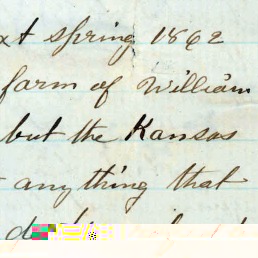 xt spring 1862
farm of William
but the Kansas
anything that